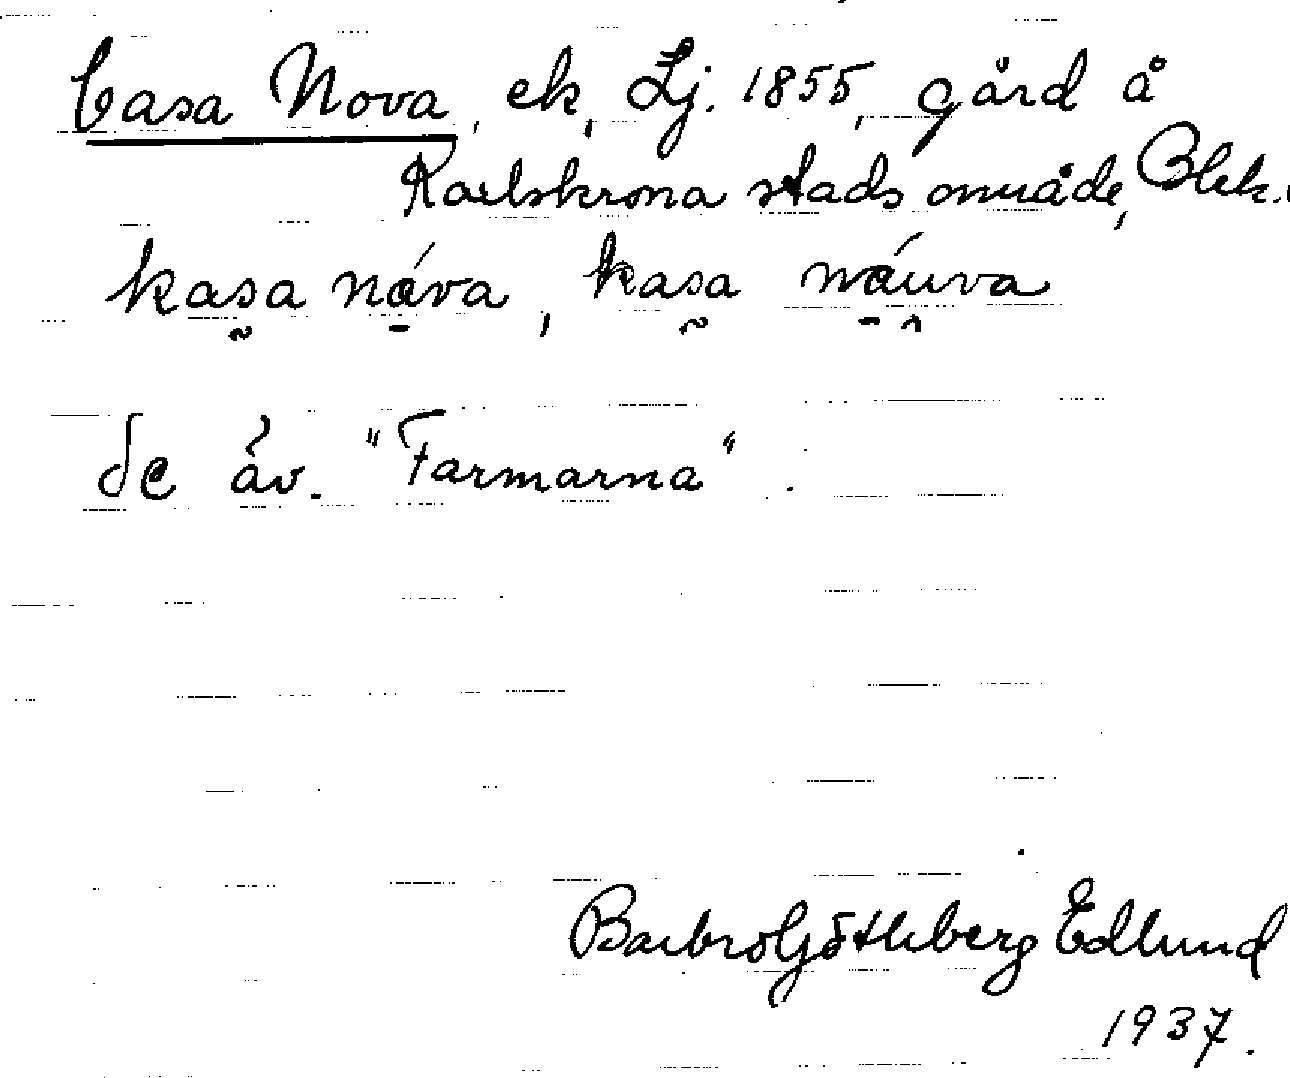 Casa Nova, ek, Lj. 1855, gård å
Karlskrona stads område, Blek.
kasa nóva, kasa náuva
Se äv. "Farmarna".
Barbro Götheberg Edlund
1937.